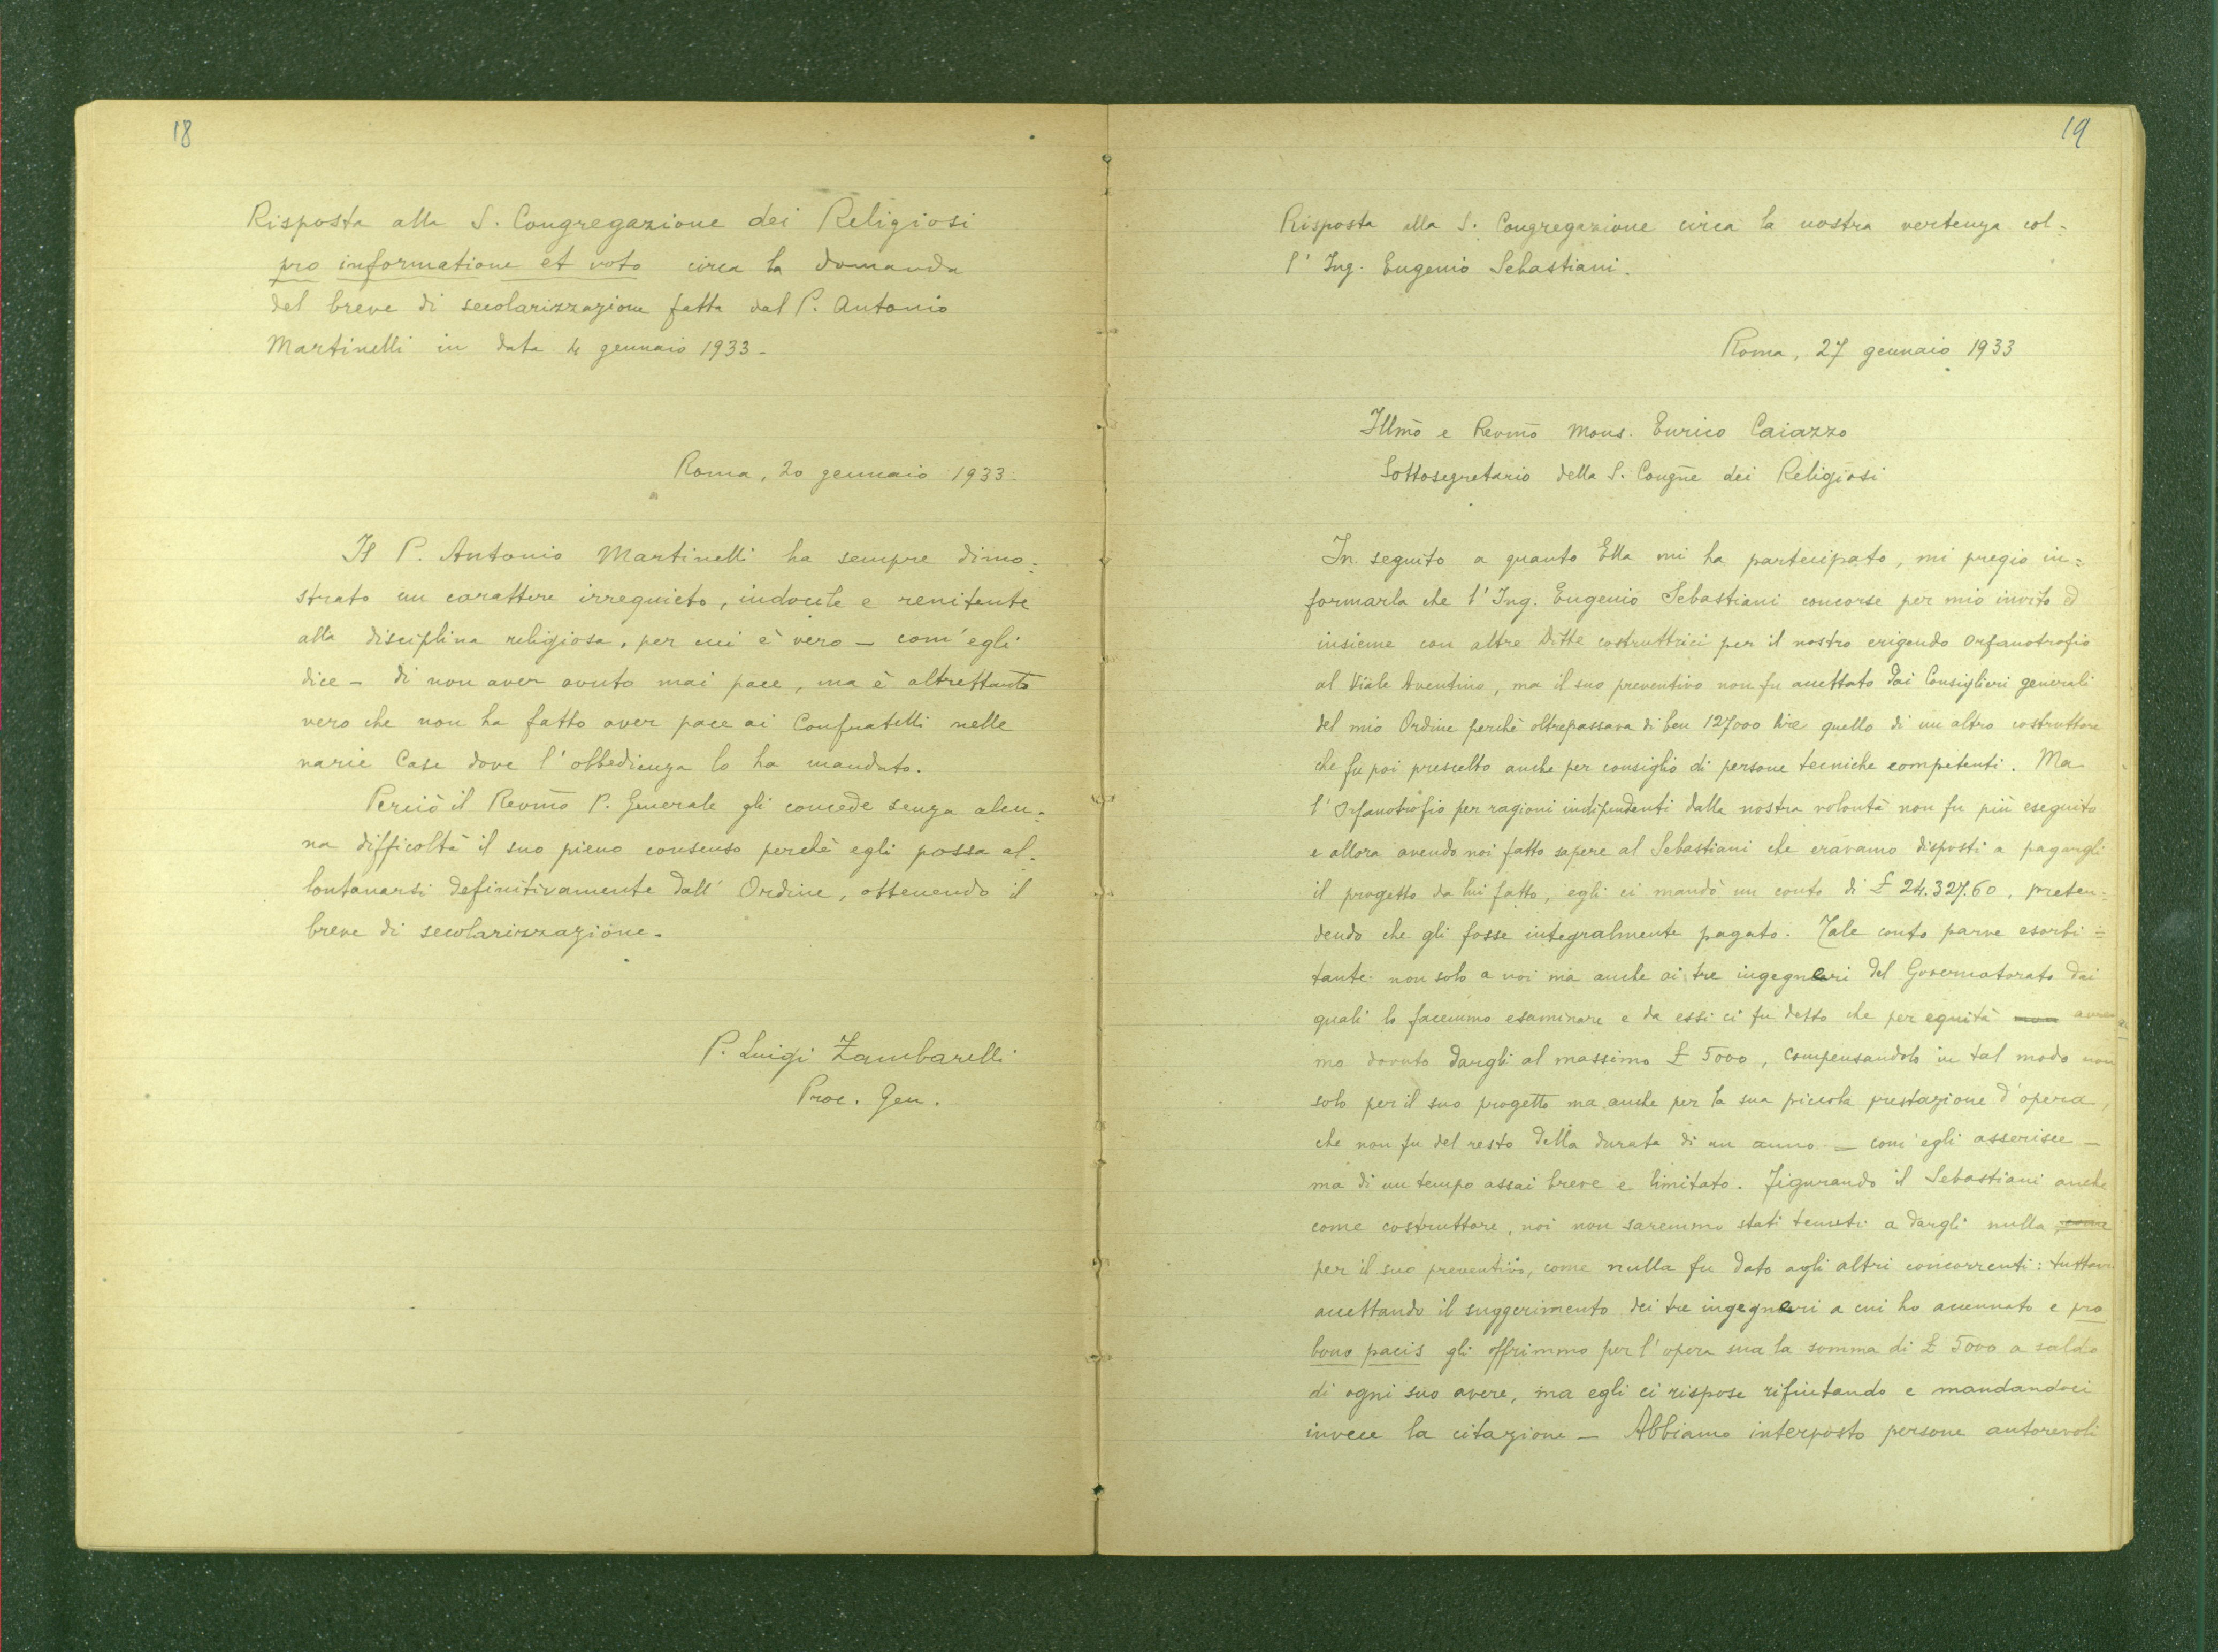 18
Risposta alla S. Congregazione dei Religiosi
pro informatione et voto circa la domanda
del breve di secolarizzazione fatta dal P. Antonio
Martinelli in data 4 gennaio 1933 -
Roma, 20 gennaio 1933.
Il P. Antonio Martinelli ha sempre dimo=
strato un carattere irrequieto, indocile e renitente
alla disciplina religiosa, per cui è vero – com'egli
dice – di non aver avuto mai pace, ma è altrettanto
vero che non ha fatto aver pace ai Confratelli nelle
varie Case dove l'obbedienza lo ha mandato.
Perciò il Revm̃o P. Generale gli concede senza alcu=
na difficoltà il suo pieno consenso perchè egli possa al=
lontanarsi definitivamente dall'Ordine, ottenendo il
breve di secolarizzazione.
P. Luigi Zambarelli
Proc. Gen.
19
Risposta alla S. Congregazione circa la nostra vertenza col=
l'Ing. Eugenio Sebastiani.
Roma, 27 gennaio 1933
Illm̃o e Revm̃o Mons. Enrico Caiazzo
Sottosegretario della S. Congñe dei Religiosi
In seguito a quanto Ella mi ha partecipato, mi pregio in=
formarla che l'Ing. Eugenio Sebastiani concorse per mio invito ed
insieme con altre Ditte costruttrici per il nostro erigendo Orfanotrofio
al Viale Aventino, ma il suo preventivo non fu accettato dai Consiglieri generali
del mio Ordine perchè oltrepassava di ben 127000 lire quello di un altro costruttore
che fu poi prescelto anche per consiglio di persone tecniche competenti. Ma
l'Orfanotrofio per ragioni indipendenti dalla nostra volontà non fu più eseguito
e allora avendo noi fatto sapere al Sebastiani che eravamo disposti a pagargli
il progetto da lui fatto, egli ci mandò un conto di £ 24.327.60, preten=
dendo che gli fosse integralmente pagato. Tale conto parve esorbi=
tante non solo a noi ma anche ai tre ingegneri del Governatorato dai
quali lo facemmo esaminare e da essi ci fu detto che per equità non avrem
mo dovuto dargli al massimo £ 5000, compensandolo in tal modo non
solo per il suo progetto ma anche per la sua piccola prestazione d'opera,
che non fu del resto della durata di un anno – com'egli asserisce –
ma di un tempo assai breve e limitato. Figurando il Sebastiani anche
come costruttore, noi non saremmo stati tenuti a dargli nulla come
per il suo preventivo, come nulla fu dato agli altri concorrenti: tuttavia
accettando il suggerimento dei tre ingegneri a cui ho accennato e pro
bono pacis gli offrimmo per l'opera sua la somma di £ 5000 a saldo
di ogni suo avere, ma egli ci rispose rifiutando e mandandoci
invece la citazione – Abbiamo interposto persone autorevoli